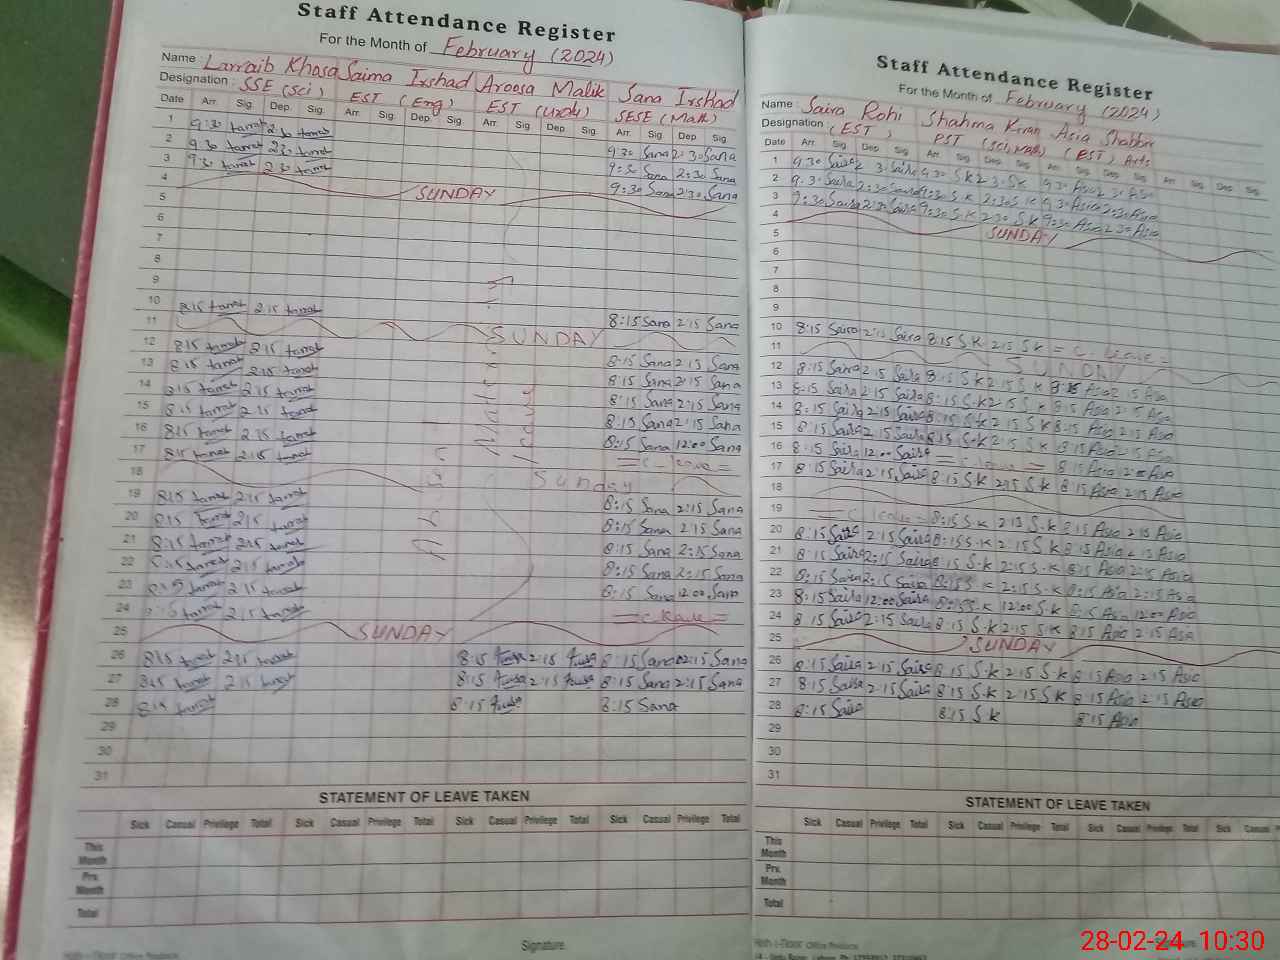 Staff Attendance Register
For the Month of February (2024)
Name : Larraib Khosa Saima Irshad Aroosa Malik Sana Irshad
Designation : SSE (Sci) EST (Eng) EST (Urdu) SESE (Math)
Date Arr. Sig. Dep. Sig. Arr. Sig. Dep. Sig. Arr. Sig. Dep. Sig. Arr. Sig. Dep. Sig.
1 9:30 2:30 9:30 Sana 2:30 Sana
2 9:30 2:30 9:30 Sana 2:30 Sana
3 9:30 2:30 9:30 Sana 2:30 Sana
4 SUNDAY
5
6
7
8
9
10 8:15 2:15 8:15 Sana 2:15 Sana
11 SUNDAY
12 8:15 2:15 8:15 Sana 2:15 Sana
13 8:15 2:15 8:15 Sana 2:15 Sana
14 8:15 2:15 8:15 Sana 2:15 Sana
15 8:15 2:15 8:15 Sana 2:15 Sana
16 8:15 2:15 8:15 Sana 12:00 Sana
17 8:15 2:15 = C. Leave =
18 Sunday
19 8:15 2:15 8:15 Sana 2:15 Sana
20 8:15 2:15 8:15 Sana 2:15 Sana
21 8:15 2:15 8:15 Sana 2:15 Sana
22 8:15 2:15 8:15 Sana 2:15 Sana
23 8:15 2:15 8:15 Sana 12:00 Sana
24 8:15 2:15 = C. Leave =
25 SUNDAY
26 8:15 2:15 8:15 2:15 8:15 Sana 2:15 Sana
27 8:15 2:15 8:15 2:15 8:15 Sana 2:15 Sana
28 8:15 8:15 8:15 Sana
29
30
31
STATEMENT OF LEAVE TAKEN
Sick Casual Privilege Total Sick Casual Privilege Total Sick Casual Privilege Total Sick Casual Privilege Total
This Month
Prv. Month
Total
Signature
Staff Attendance Register
For the Month of February (2024)
Name : Saira Rohi Shahma Kiran Asia Shabbir
Designation : (EST) PST (Sci, Math) (EST) Arts
Date Arr. Sig. Dep. Sig. Arr. Sig. Dep. Sig. Arr. Sig. Dep. Sig. Arr. Sig. Dep. Sig.
1 9:30 Saira 2:30 Saira 9:30 S.K 2:30 S.K 9:30 Asia 2:30 Asia
2 9:30 Saira 2:30 Saira 9:30 S.K 2:30 S.K 9:30 Asia 2:30 Asia
3 9:30 Saira 2:30 Saira 9:30 S.K 2:30 S.K 9:30 Asia 2:30 Asia
4 SUNDAY
5
6
7
8
9
10 8:15 Saira 2:15 Saira 8:15 S.K 2:15 S.K = C. Leave =
11 SUNDAY
12 8:15 Saira 2:15 Saira 8:15 S.K 2:15 S.K 8:15 Asia 2:15 Asia
13 8:15 Saira 2:15 Saira 8:15 S.K 2:15 S.K 8:15 Asia 2:15 Asia
14 8:15 Saira 2:15 Saira 8:15 S.K 2:15 S.K 8:15 Asia 2:15 Asia
15 8:15 Saira 2:15 Saira 8:15 S.K 2:15 S.K 8:15 Asia 2:15 Asia
16 8:15 Saira 12:00 Saira = C leave = 8:15 Asia 12:00 Asia
17 8:15 Saira 2:15 Saira 8:15 S.K 2:15 S.K 8:15 Asia 2:15 Asia
18
19 = C leave = 8:15 S.K 2:15 S.K 8:15 Asia 2:15 Asia
20 8:15 Saira 2:15 Saira 8:15 S.K 2:15 S.K 8:15 Asia 2:15 Asia
21 8:15 Saira 2:15 Saira 8:15 S.K 2:15 S.K 8:15 Asia 2:15 Asia
22 8:15 Saira 2:15 Saira 8:15 S.K 2:15 S.K 8:15 Asia 2:15 Asia
23 8:15 Saira 12:00 Saira 8:15 S.K 12:00 S.K 8:15 Asia 12:00 Asia
24 8:15 Saira 2:15 Saira 8:15 S.K 2:15 S.K 8:15 Asia 2:15 Asia
25 SUNDAY
26 8:15 Saira 2:15 Saira 8:15 S.K 2:15 S.K 8:15 Asia 2:15 Asia
27 8:15 Saira 2:15 Saira 8:15 S.K 2:15 S.K 8:15 Asia 2:15 Asia
28 8:15 Saira 8:15 S.K 8:15 Asia
29
30
31
STATEMENT OF LEAVE TAKEN
Sick Casual Privilege Total Sick Casual Privilege Total Sick Casual
This Month
Prv. Month
Total
28-02-24 10:30